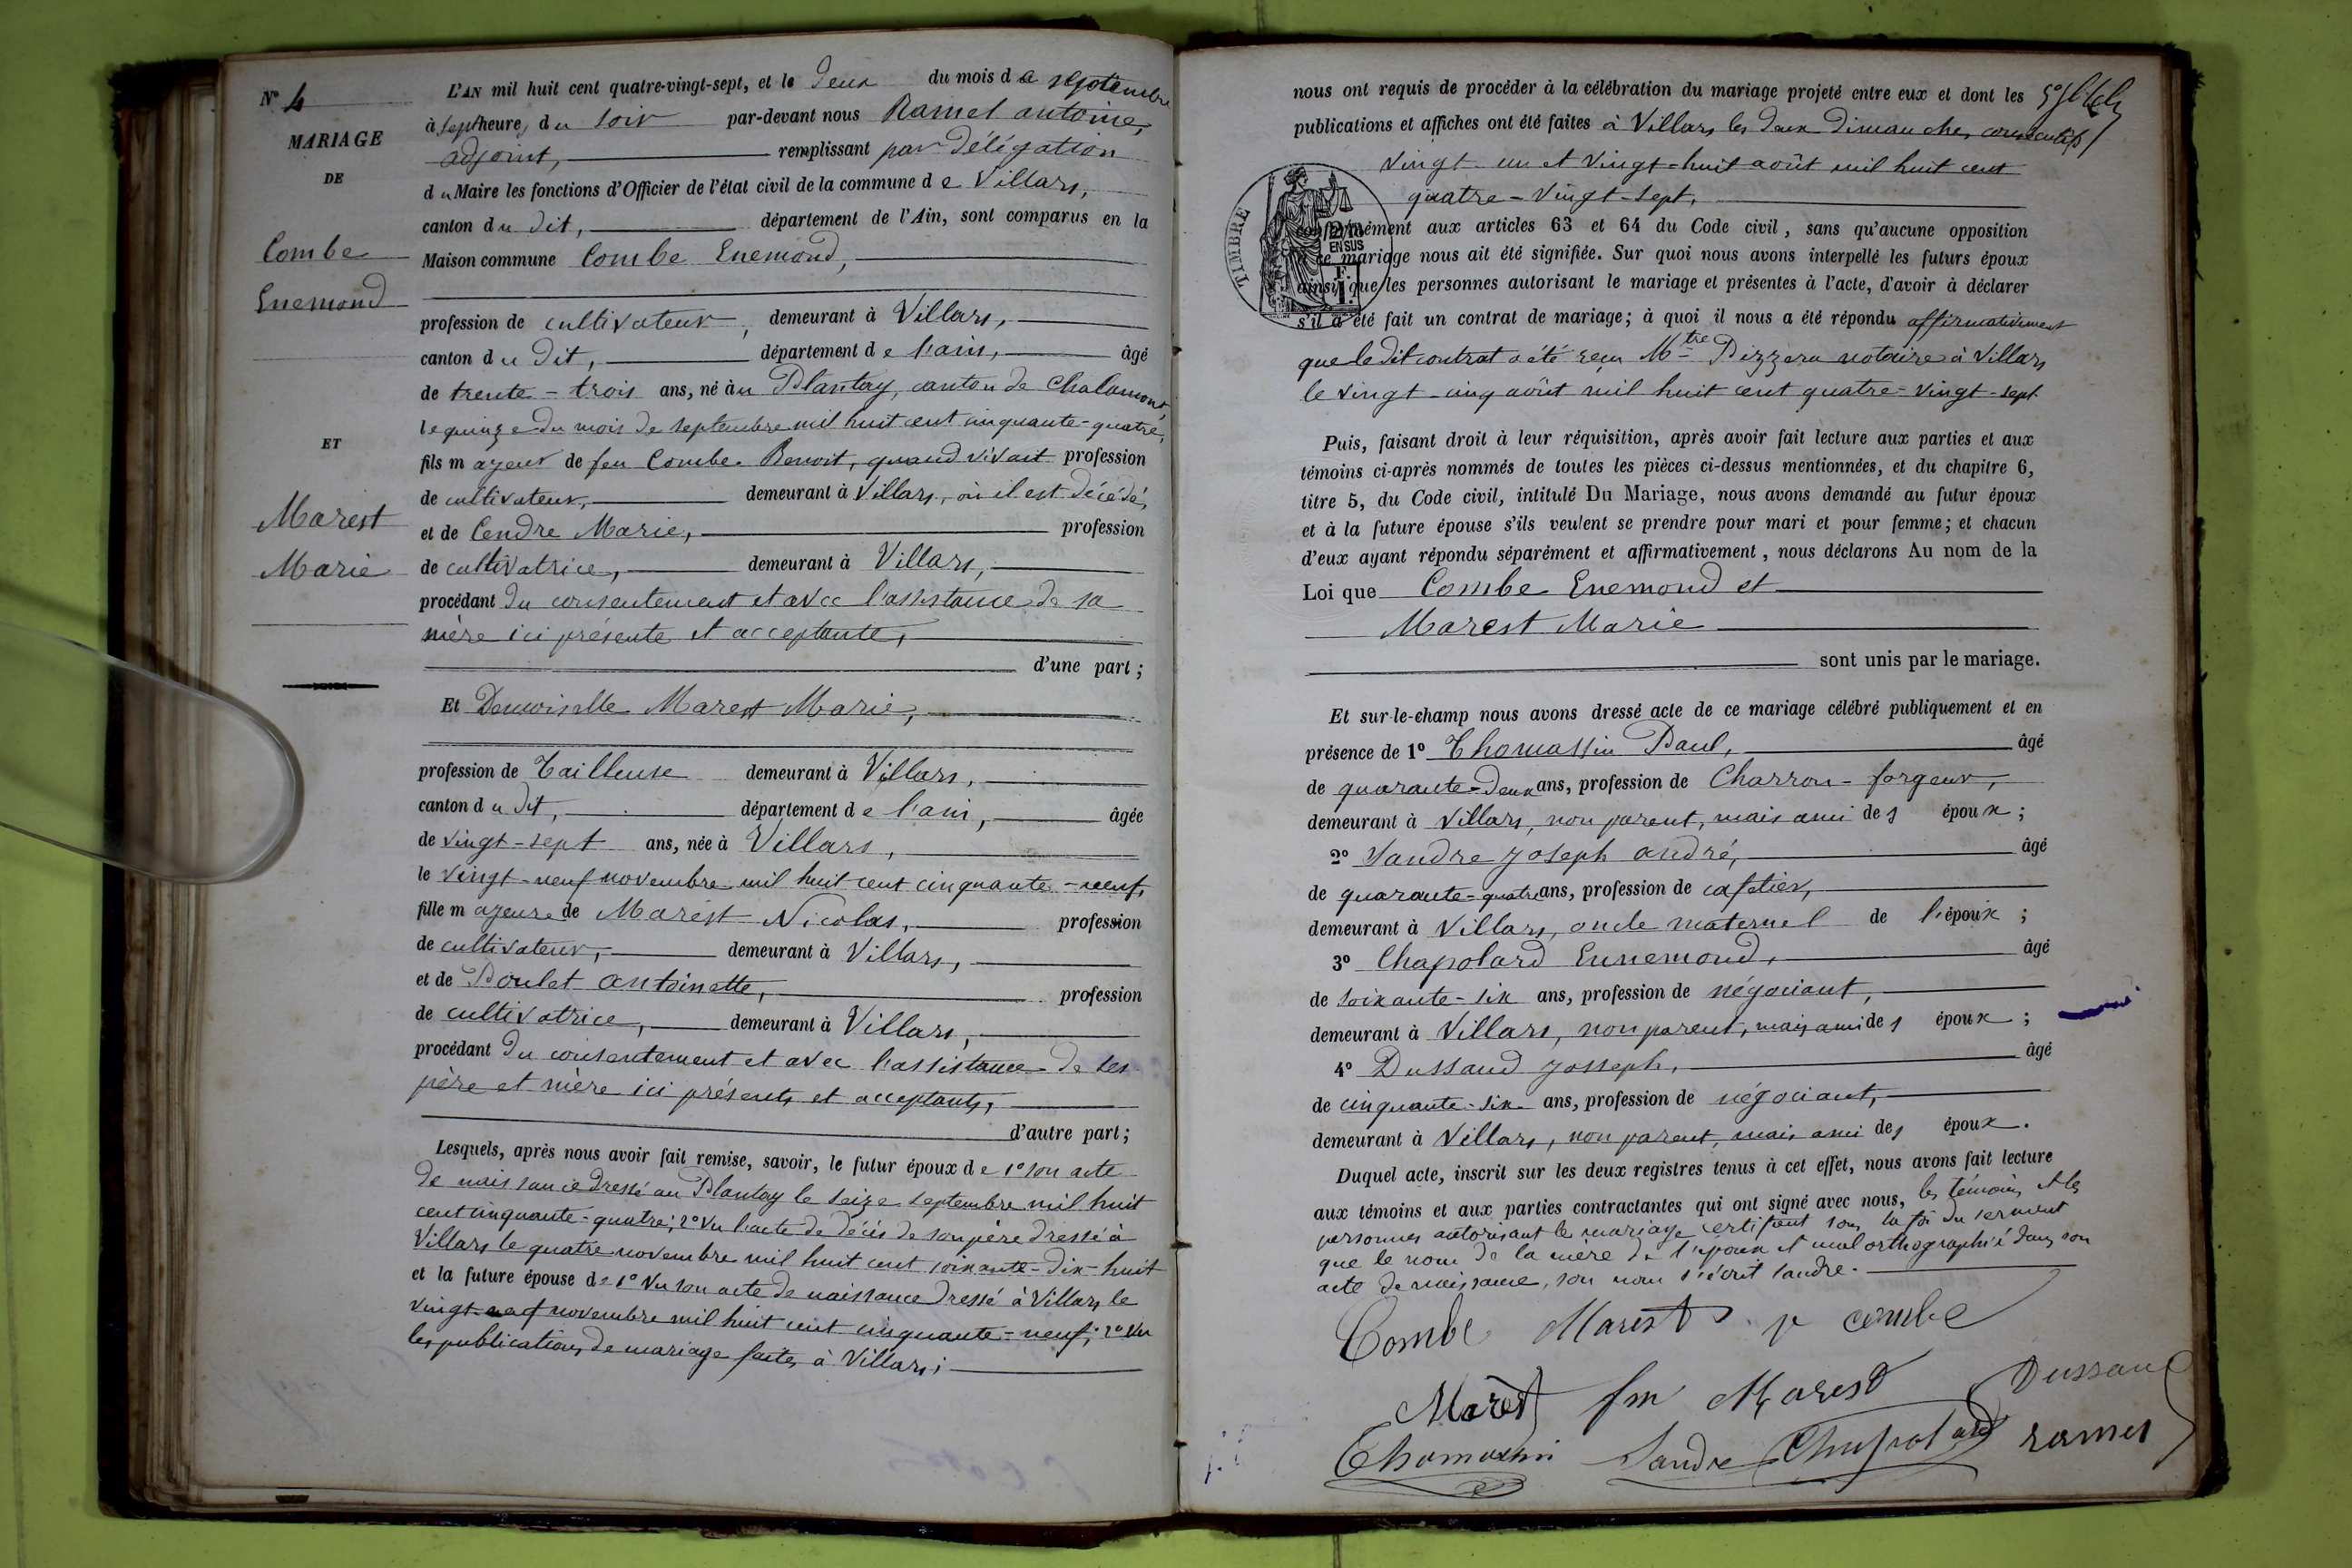 N° 4
MARIAGE
DE
Combe
Enemond
ET
Marest
Marie
L'AN mil huit cent quatre-vingt-sept, et le deux du mois de septembre
à sept heures du soir par-devant nous Ramel antoine,
adjoint, remplissant par délégation
du Maire les fonctions d'Officier de l'état civil de la commune de Villars,
canton du dit, département de l'Ain, sont comparus en la
Maison commune Combe Enemond,
profession de cultivateur, demeurant à Villars,
canton du dit, département de l'ain, âgé
de trente-trois ans, né au Plantay, canton de Chalamont,
le quinze du mois de septembre mil huit cent cinquante-quatre,
fils majeur de feu Combe Benoit, quand vivait profession
de cultivateur, demeurant à Villars, où il est décédé,
et de Cendre Marie, profession
de cultivatrice, demeurant à Villars,
procédant du consentement et avec l'assistance de sa
mère ici présente et acceptante,
d'une part;
Et Demoiselle Marest Marie,
profession de Tailleuse demeurant à Villars,
canton du dit, département de l'ain, âgée
de vingt-sept ans, née à Villars,
le vingt-neuf novembre mil huit cent cinquante-neuf,
fille majeure de Marest Nicolas, profession
de cultivateur, demeurant à Villars,
et de Poulet antoinette, profession
de cultivatrice, demeurant à Villars,
procédant du consentement et avec l'assistance de ses
père et mère ici présents et acceptants,
d'autre part;
Lesquels, après nous avoir fait remise, savoir, le futur époux de 1° son acte
de naissance dressé au Plantay le seize septembre mil huit
cent cinquante-quatre; 2° vu l'acte de décès de son père dressé à
Villars le quatre novembre mil huit cent soixante-dix-huit
et la future épouse de 1° Vu son acte de naissance dressé à Villars le
vingt-neuf novembre mil huit cent cinquante-neuf; 2° Vu
les publications de mariage faites à Villars;
nous ont requis de procéder à la célébration du mariage projeté entre eux et dont les
publications et affiches ont été faites à Villars les deux dimanches consécutifs
vingt-un et vingt-huit août mil huit cent
quatre-vingt-sept,
TIMBRE
2/10
EN SUS
F.
1.
conformément aux articles 63 et 64 du Code civil, sans qu'aucune opposition
à ce mariage nous ait été signifiée. Sur quoi nous avons interpellé les futurs époux
ainsi que les personnes autorisant le mariage et présentes à l'acte, d'avoir à déclarer
s'il a été fait un contrat de mariage; à quoi il nous a été répondu affirmativement
que le dit contrat a été reçu Mtre Pizzera notaire à Villars
le vingt-cinq août mil huit cent quatre-vingt-sept.
Puis, faisant droit à leur réquisition, après avoir fait lecture aux parties et aux
témoins ci-après nommés de toutes les pièces ci-dessus mentionnées, et du chapitre 6,
titre 5, du Code civil, intitulé Du Mariage, nous avons demandé au futur époux
et à la future épouse s'ils veulent se prendre pour mari et pour femme; et chacun
d'eux ayant répondu séparément et affirmativement, nous déclarons Au nom de la
Loi que Combe Enemond et
Marest Marie
sont unis par le mariage.
Et sur-le-champ nous avons dressé acte de ce mariage célébré publiquement et en
présence de 1° Thomassin Paul, âgé
de quarante-deux ans, profession de Charron-forgeur,
demeurant à Villars, non parent, mais ami des époux;
2° Sandre Joseph andré, âgé
de quarante-quatre ans, profession de cafetier,
demeurant à Villars, oncle maternel de l'époux;
3° Chapolard Ennemond, âgé
de soixante-six ans, profession de négociant,
demeurant à Villars, non parent, mais ami des époux;
4° Dussaud Josseph, âgé
de cinquante-six ans, profession de négociant,
demeurant à Villars, non parent, mais ami des époux.
Duquel acte, inscrit sur les deux registres tenus à cet effet, nous avons fait lecture
aux témoins et aux parties contractantes qui ont signé avec nous, les témoins et les
personnes autorisant le mariage certifient sous la foi du serment
que le nom de la mère de l'époux et mal orthographié dans son
acte de naissance, son nom s'écrit Sandre.
Combe Marest combe
Marest fm Marest Dussaud
Thomassin Sandre Chapolard ramel